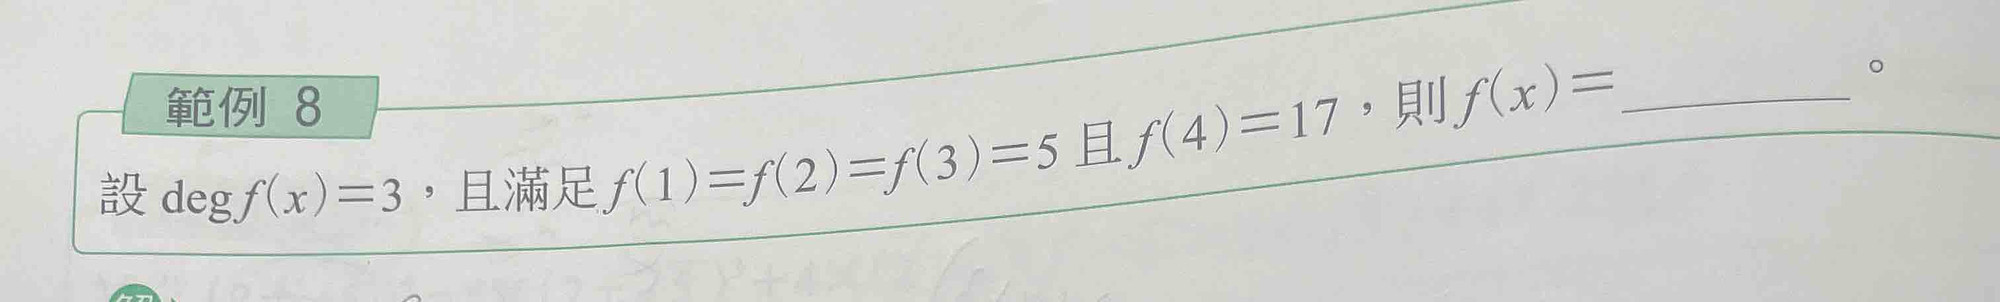 範例 8
設 deg f(x)=3，且滿足 f(1)=f(2)=f(3)=5 且 f(4)=17，則 f(x)=________。